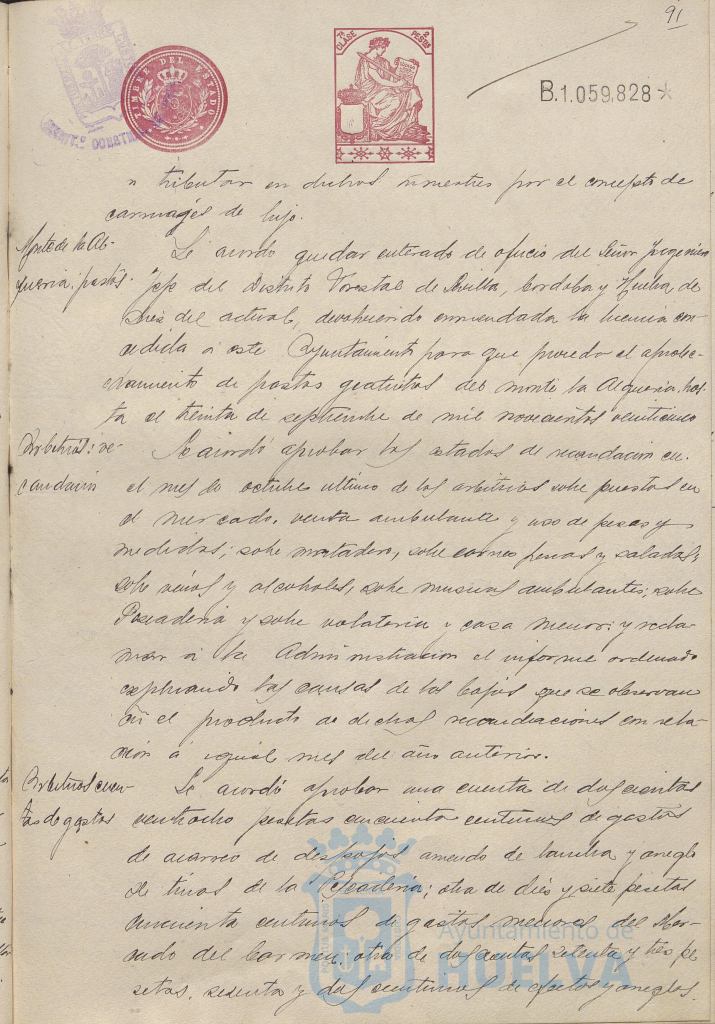 91
7ª CLASE 2 PESETAS
TIMBRE DEL ESTADO
B.1.059,828 *
a tributar en dichos trimestres por el concepto de
carruages de lujo.
Monte de la Al-
queria: pastos
Se acordó quedar enterado de oficio del Señor Ingeniero
Jefe del Distrito Forestal de Sevilla, Cordoba y Huelva, de
tres del actual, devolviendo enmendada la licencia con-
cedida á este Ayuntamiento para que proceda el aprove-
chamiento de pastos gratuitos del monte la Alqueria, has-
ta el treinta de septiembre de mil novecientos veintiuno
Arbitrios: re-
caudación
Se acordó aprobar los estados de recaudacion en
el mes de octubre ultimo de los arbitrios sobre puestos en
el mercado, venta ambulante y uso de pesas y
medidas; sobre matadero, sobre carnes frescas y saladas;
sobre vinos y alcoholes, sobre musicas ambulantes; sobre
Pescaderia y sobre volateria y caza menor: y recla-
mar á la Administración el informe ordenado
explicando las causas de las bajas que se observan
en el producto de dichas recaudaciones con rela-
ción á igual mes del año anterior.
Arbitrios cuen-
tas de gastos
Se acordó aprobar una cuenta de doscientas
veintiocho pesetas cincuenta centimos de gastos
de acarreo de despojos, arriendo de bomba y arreglo
de tinas de la Pescaderia; otra de diez y siete pesetas
cincuenta centimos de gastos menores del Mer-
cado del Carmen; otra de doscientas setenta y tres pe-
setas, sesenta y dos centimos de efectos y arreglos
Ayuntamiento de
HUELVA